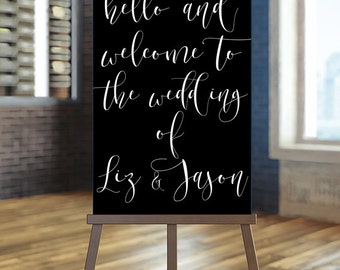 hello and
welcome to
the wedding
of
Liz & Jason